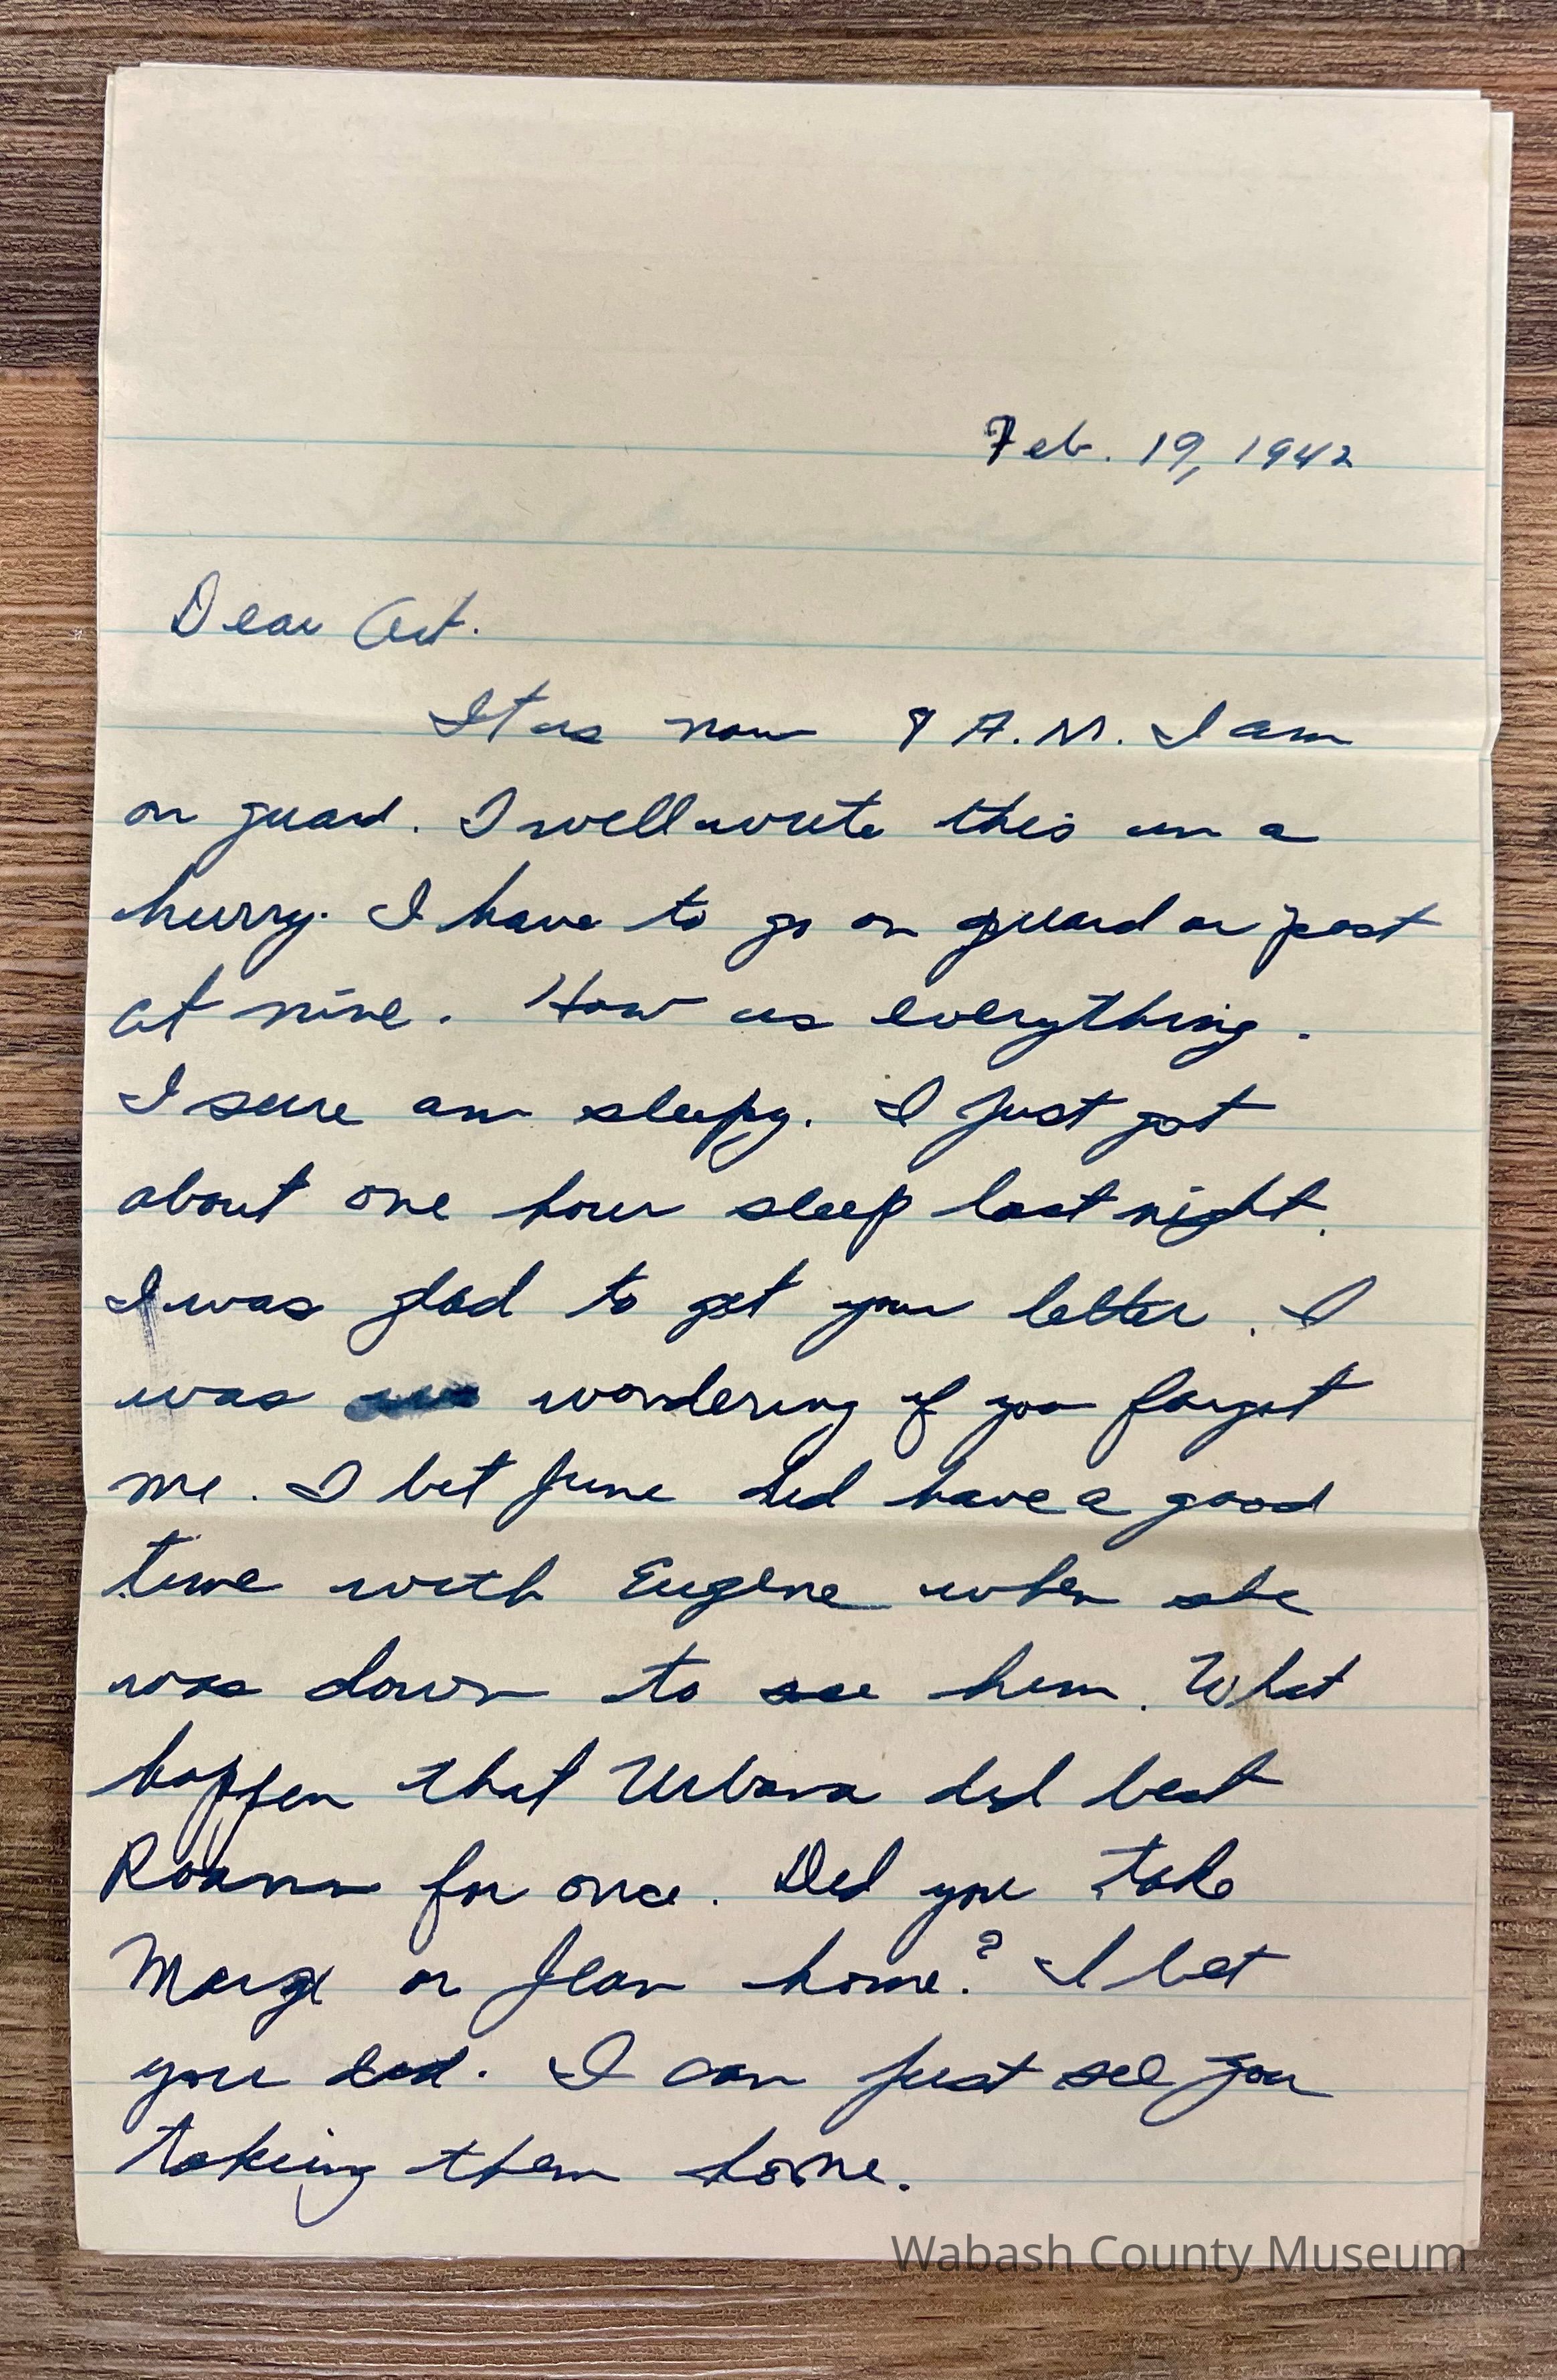 Feb. 19, 1942
Dear Art.
It is now 8 A.M. I am
on guard. I will write this in a
hurry. I have to go on guard or post
at nine. How is everything.
I sure am sleepy. I just got
about one hour sleep last night.
I was glad to get your letter. I
was wondering if you forgot
me. I bet June did have a good
time with Eugene when she
was down to see him. What
happen that Urbana did beat
Roann for once. Did you take
Marge or Jean home? I bet
you did. I can just see you
taking them home.
Wabash County Museum